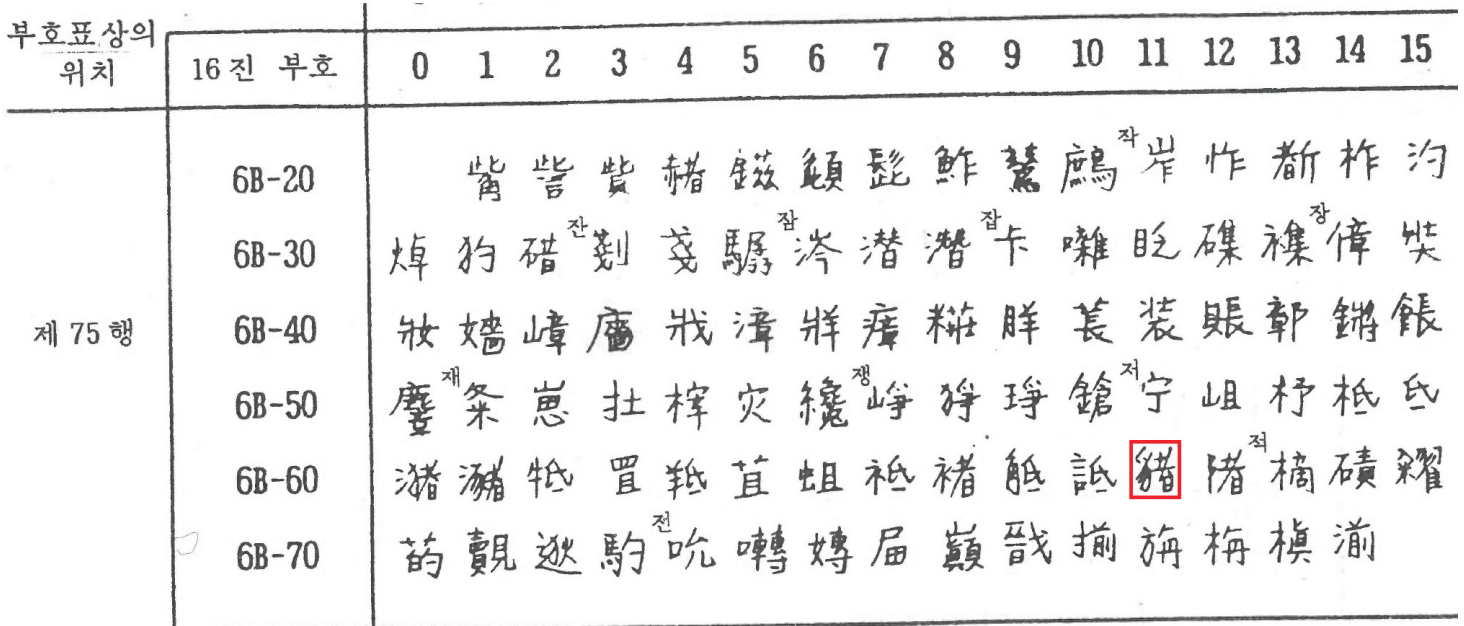 부호표상의 위치 16진 부호 0 1 2 3 4 5 6 7 8 9 10 11 12 13 14 15
6B-20 觜 訾 貲 赭 鎡 頿 髭 鮓 鶿 鷓 작 岝 怍 斮 柞 汋
6B-30 焯 犳 碏 잔 剗 戔 驏 잠 涔 潜 濳 잡 卡 囃 眨 磼 襍 장 傽 奘
제 75 행 6B-40 妝 嬙 嶂 廧 戕 漳 牂 瘴 糚 萇 裝 賬 鄣 鏘 餦
6B-50 麞 재 崽 扗 榟 灾 纔 쟁 崢 猙 琤 鎗 저 宁 岨 杼 柢 氐
6B-60 潴 瀦 牴 罝 羝 苴 蛆 袛 褚 觝 詆 豬 陼 적 樀 磧 糴
6B-70 菂 覿 逖 馰 전 吮 囀 嫥 屇 巓 戩 揃 旃 栴 槇 湔